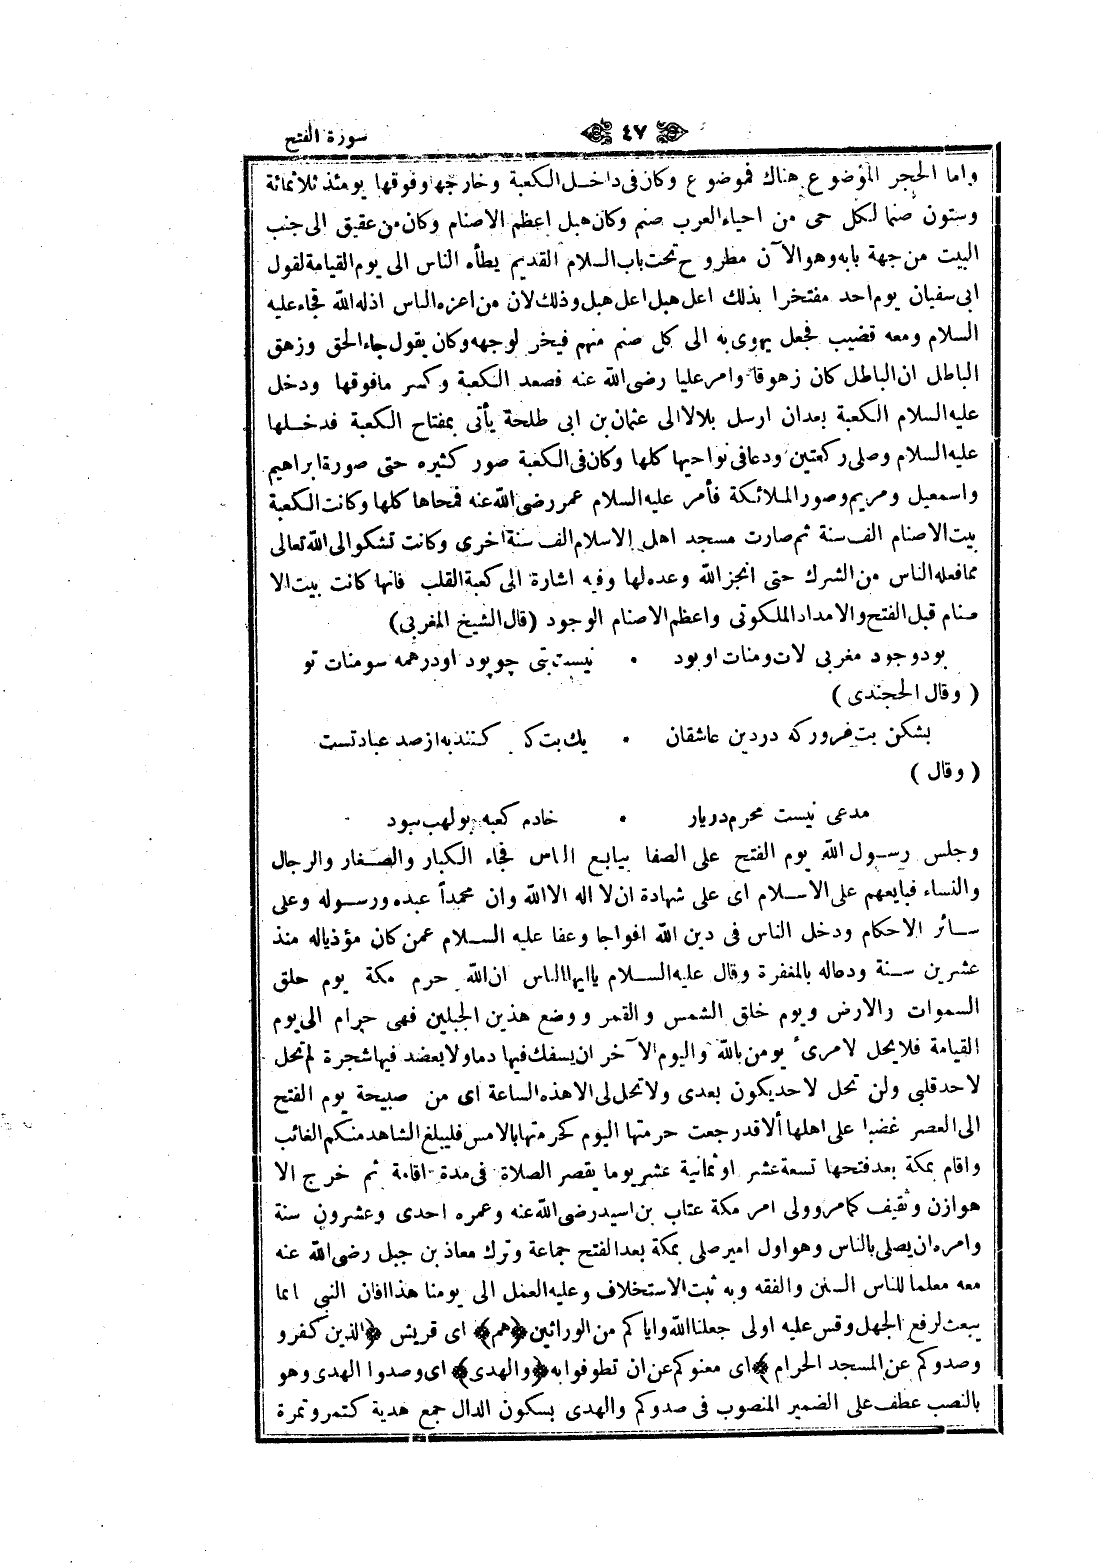 سورة الفتح
٤٧
واما الحجر الموضوع هناك فموضوع وكان فى داخل الكعبة وخارجها وفوقها يومئذ ثلاثمائة
وستون صنما لكل حى من احياء العرب صنم وكان هبل اعظم الاصنام وكان من عقيق الى جنب
البيت من جهة بابه وهو الآن مطروح تحت باب السلام القديم يطأه الناس الى يوم القيامة لقول
ابى سفيان يوم احد مفتخرا بذلك اعل هبل اعل هبل وذلك لان من اعزه الناس اذله الله فجاء عليه
السلام ومعه قضيب فجعل يهوى به الى كل صنم منهم فيخر لوجهه وكان يقول جاء الحق وزهق
الباطل ان الباطل كان زهوقا وامر عليا رضى الله عنه فصعد الكعبة وكسر مافوقها ودخل
عليه السلام الكعبة بعد ان ارسل بلالا الى عثمان بن ابى طلحة يأتى بمفتاح الكعبة فدخلها
عليه السلام وصلى ركعتين ودعا فى نواحيها كلها وكان فى الكعبة صور كثيره حتى صورة ابراهيم
واسمعيل ومريم وصور الملائكة فأمر عليه السلام عمر رضى الله عنه فمحاها كلها وكانت الكعبة
بيت الاصنام الف سنة ثم صارت مسجد اهل الاسلام الف سنة اخرى وكانت تشكو الى الله تعالى
مما فعله الناس من الشرك حتى انجز الله وعده لها وفيه اشارة الى كعبة القلب فانها كانت بيت الا
صنام قبل الفتح والامداد الملكوتى واعظم الاصنام الوجود (قال الشيخ المغربى)
بود وجود مغربى لات ومنات او بود • نيست بتى چو بود او در همه سومنات تو
(وقال الخجندى)
بشكن بت غرور كه در دين عاشقان • يك بت كه كنند به از صد عبادتست
(وقال)
مدعى نيست محرم دريار • خادم كعبه بولهب نبود
وجلس رسول الله يوم الفتح على الصفا يبايع الناس فجاء الكبار والصغار والرجال
والنساء فبايعهم على الاسلام اى على شهادة ان لا اله الا الله وان محمداً عبده ورسوله وعلى
سائر الاحكام ودخل الناس فى دين الله افواجا وعفا عليه السلام عمن كان مؤذياله منذ
عشرين سنة ودعاله بالمغفرة وقال عليه السلام يا ايها الناس ان الله حرم مكة يوم خلق
السموات والارض ويوم خلق الشمس والقمر ووضع هذين الجبلين فهى حرام الى يوم
القيامة فلا يحل لامرئ يومن بالله واليوم الآخر ان يسفك فيها دما ولا يعضد فيها شجرة لم تحل
لاحد قبلى ولن تحل لاحد يكون بعدى ولا تحل لى الا هذه الساعة اى من صبيحة يوم الفتح
الى العصر غضبا على اهلها ألا قد رجعت حرمتها اليوم كحرمتها بالامس فليبلغ الشاهد منكم الغائب
واقام بمكة بعد فتحها تسعة عشر او ثمانية عشر يوما يقصر الصلاة فى مدة اقامة ثم خرج الا
هوازن وثقيف كما مر وولى امر مكة عتاب بن اسيد رضى الله عنه وعمره احدى وعشرون سنة
وامره ان يصلى بالناس وهو اول امير صلى بمكة بعد الفتح جماعة وترك معاذ بن جبل رضى الله عنه
معه معلما للناس السنن والفقه وبه ثبت الاستخلاف وعليه العمل الى يومنا هذا افان النبى انما
يبعث لرفع الجهل وقس عليه اولى جعلنا الله واياكم من الوراثين ﴿هم﴾ اى قريش ﴿الذين كفرو
وصدوكم عن المسجد الحرام﴾ اى منعوكم عن ان تطوفوا به ﴿والهدى﴾ اى وصدوا الهدى وهو
بالنصب عطف على الضمير المنصوب فى صدوكم والهدى بسكون الدال جمع هدية كتمر وتمرة